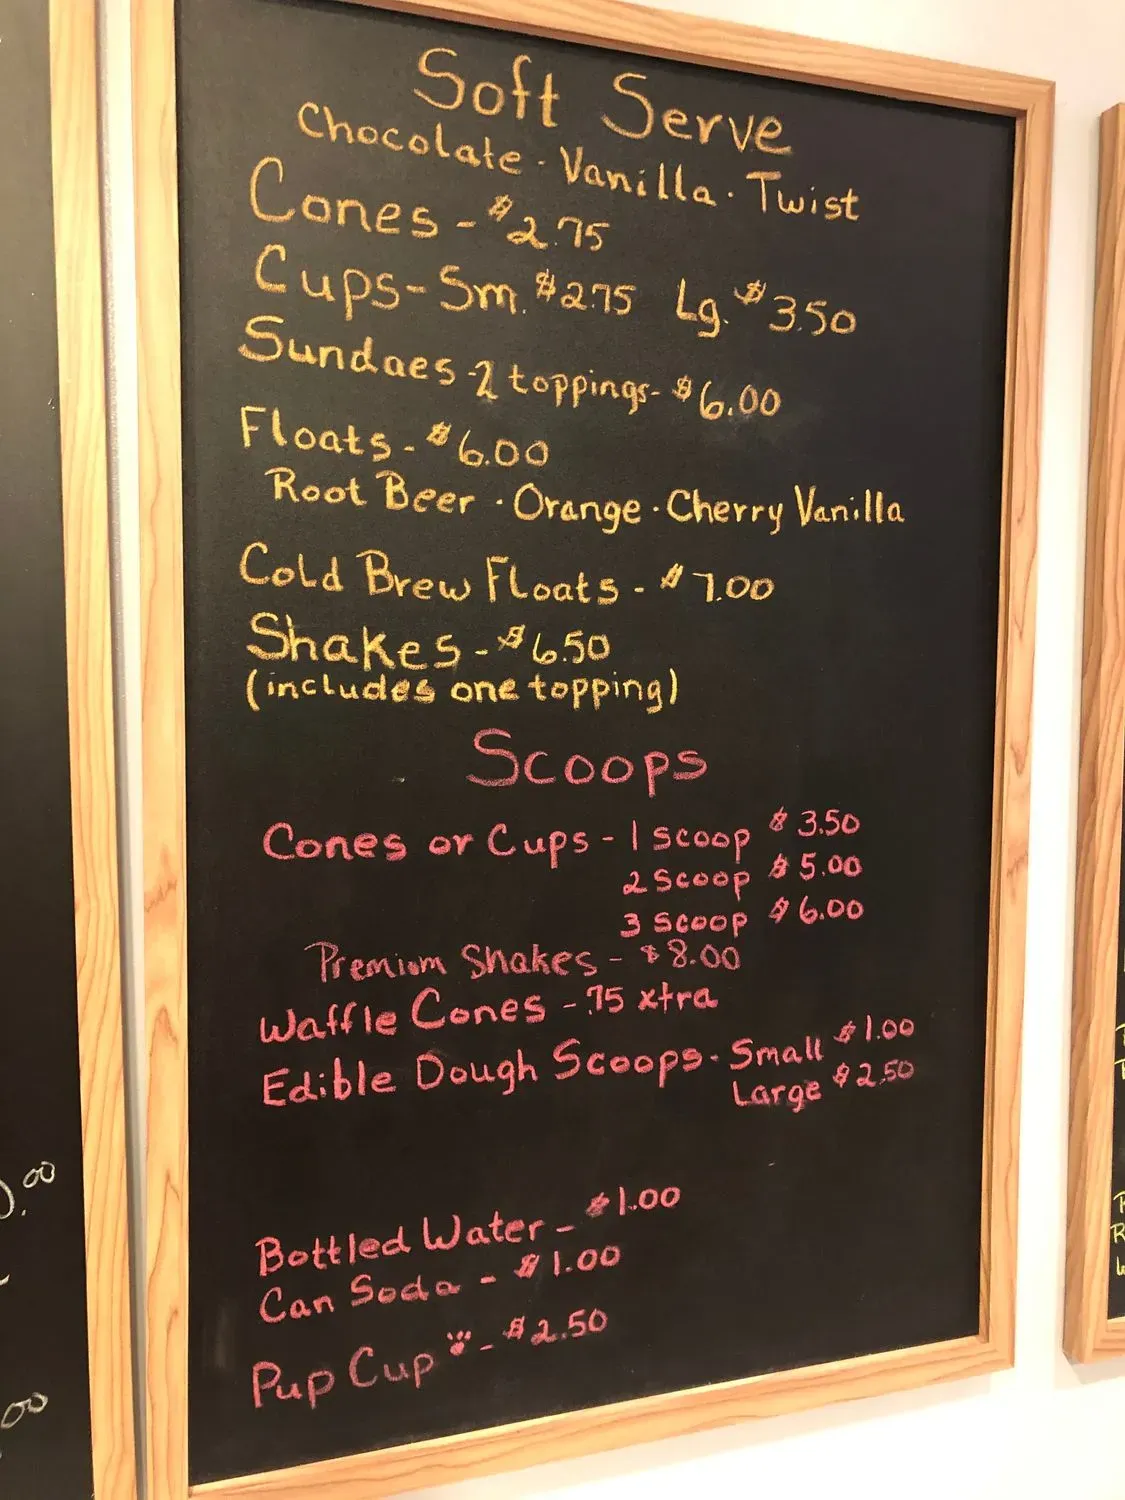 Soft Serve
Chocolate · Vanilla · Twist
Cones - $2.75
Cups - Sm. $2.75 Lg. $3.50
Sundaes - 2 toppings - $6.00
Floats - $6.00
Root Beer · Orange · Cherry Vanilla
Cold Brew Floats - $7.00
Shakes - $6.50
(includes one topping)
Scoops
Cones or Cups - 1 scoop $3.50
2 scoop $5.00
3 scoop $6.00
Premium Shakes - $8.00
Waffle Cones - .75 xtra
Edible Dough Scoops - Small $1.00
Large $2.50
Bottled Water - $1.00
Can Soda - $1.00
Pup Cup - $2.50